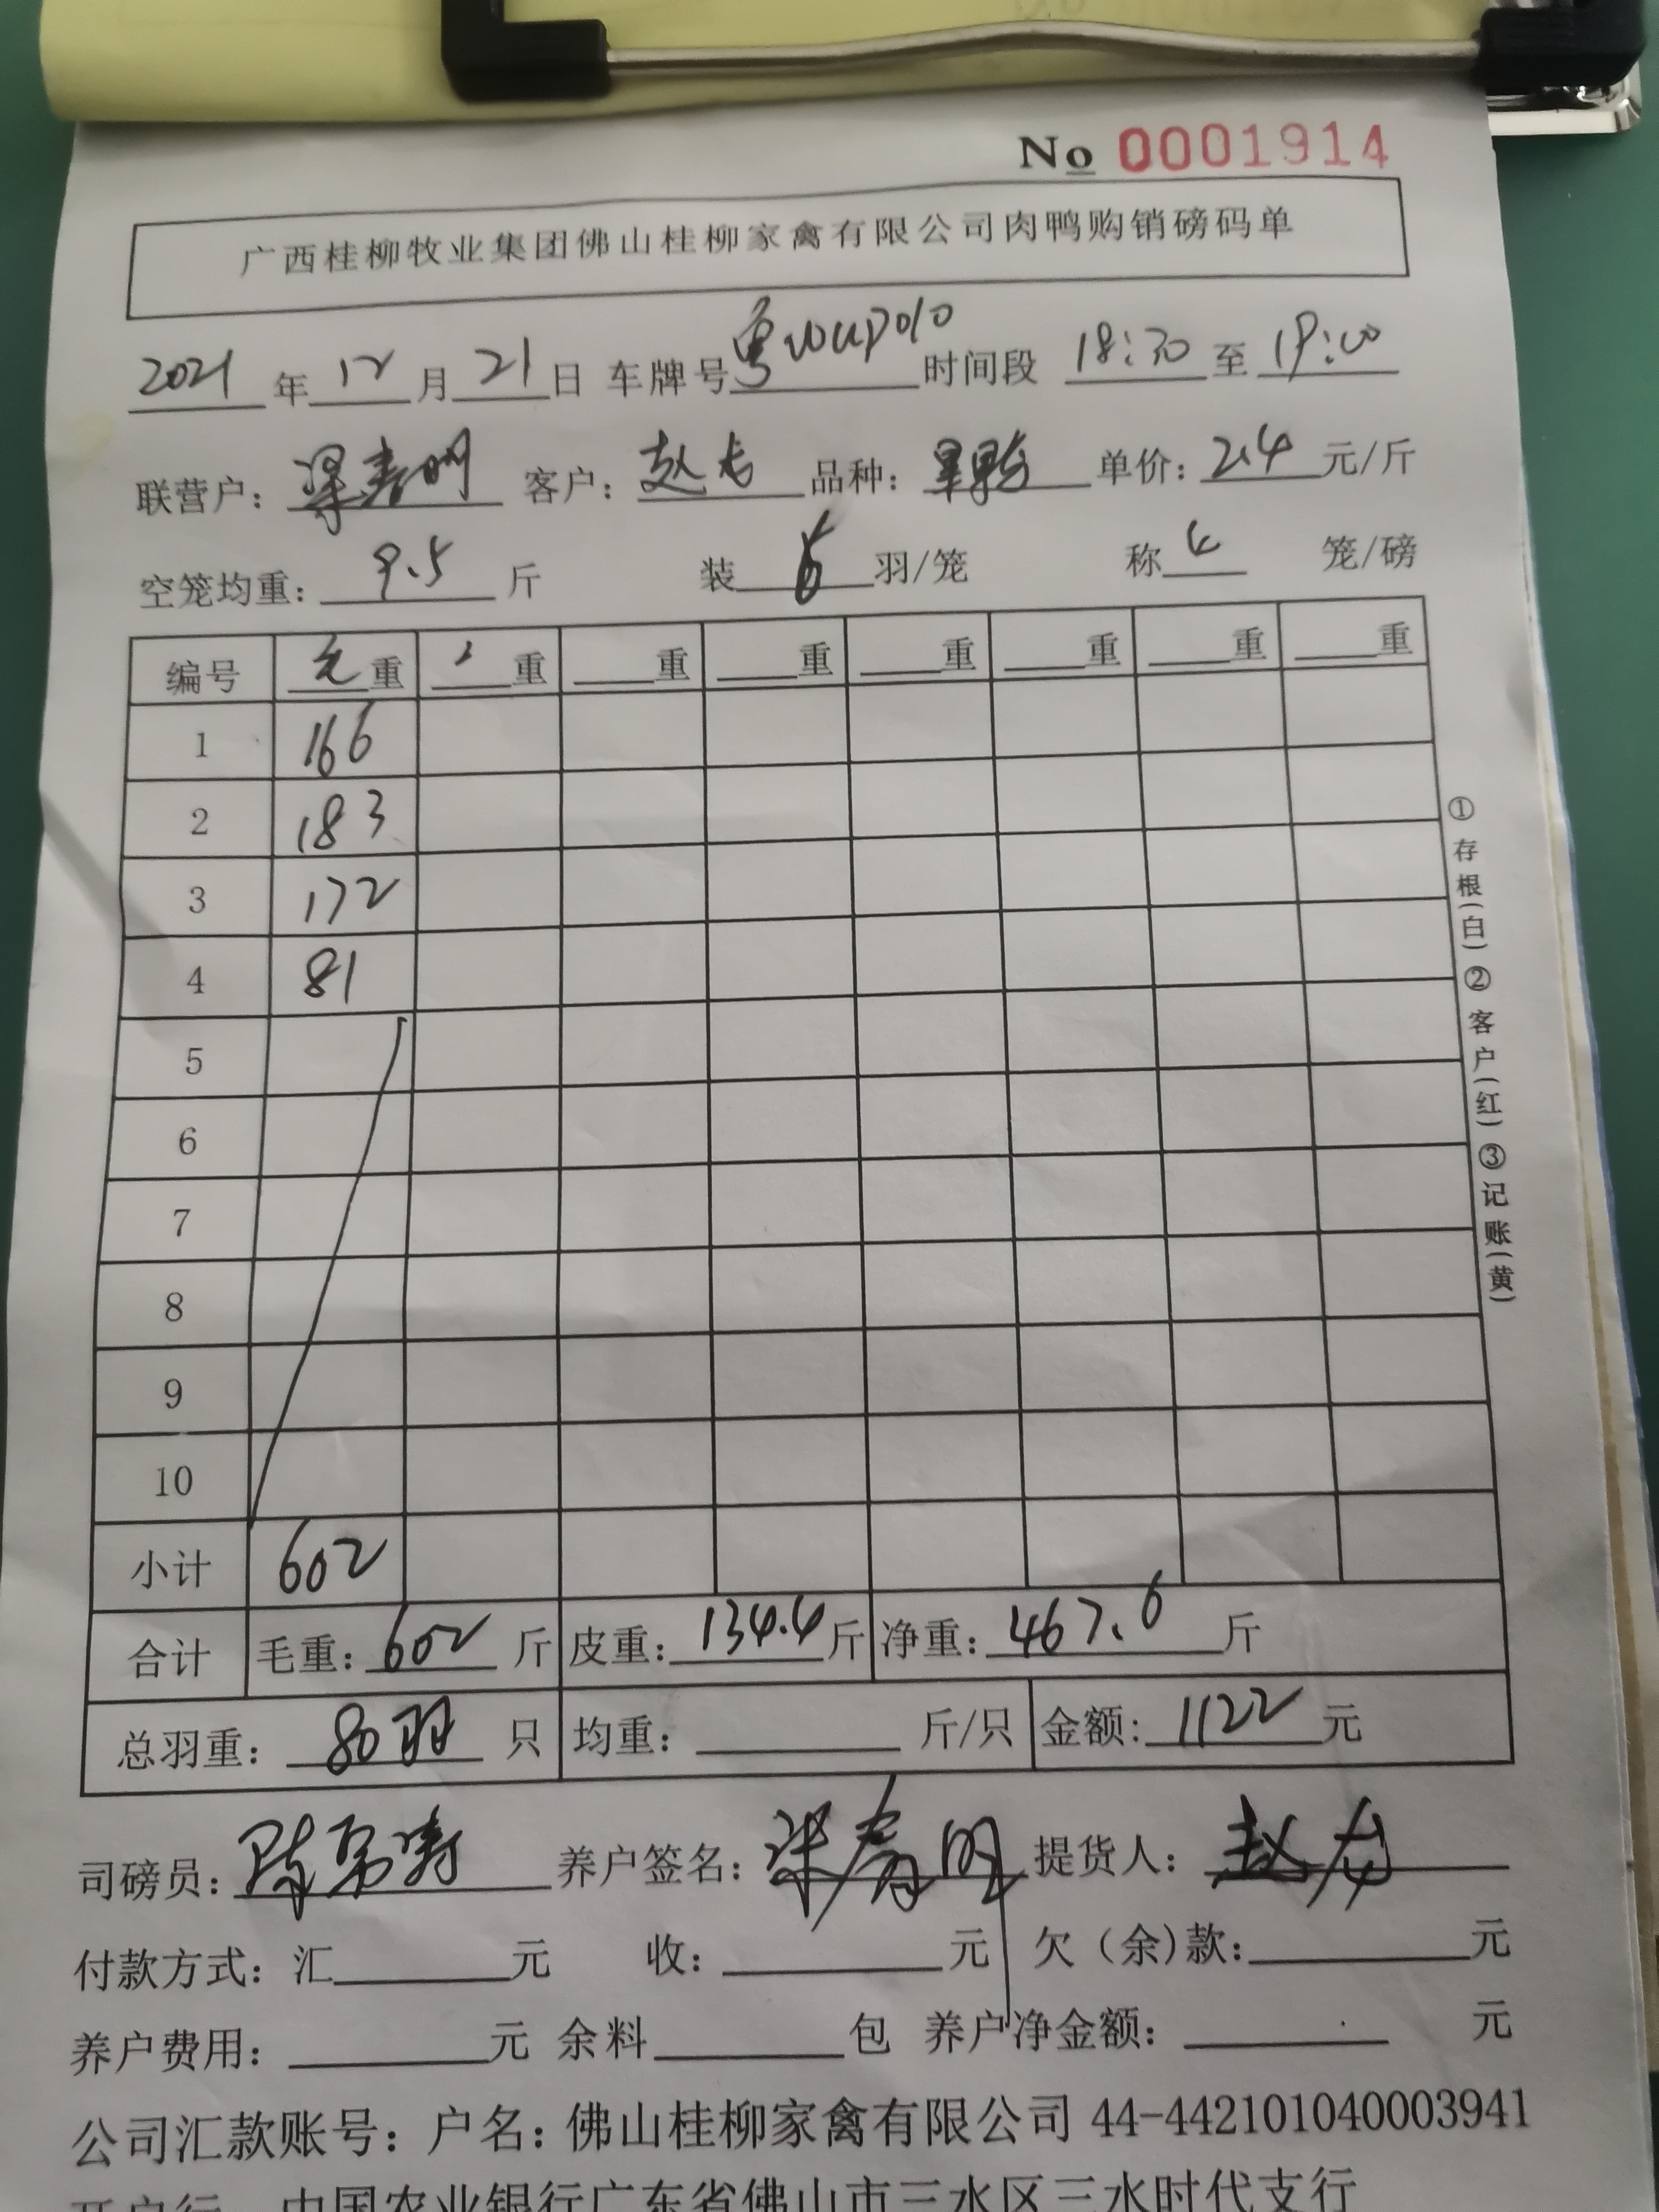 No 0001914
广西桂柳牧业集团佛山桂柳家禽有限公司肉鸭购销磅码单
2021年12月21日 车牌号 时间段 18:30至19:00
联营户: 梁寿明 客户: 赵 品种: 单价: 2.4元/斤
空笼均重: 9.5斤 装 羽/笼 称4 笼/磅
编号 毛重 重 重 重 重 重 重 重
1 166
2 183
3 172
4 81
5
6
7
8
9
10
小计 602
合计 毛重: 602斤 皮重: 134.4斤 净重: 467.6斤
总羽重: 80羽只 均重: 斤/只 金额: 1122元
司磅员: 陈 养户签名: 梁寿明 提货人: 赵龙
付款方式: 汇 元 收: 元 欠(余)款: 元
养户费用: 元 余料 包 养户净金额: 元
公司汇款账号: 户名: 佛山桂柳家禽有限公司 44-442101040003941
开户行 中国农业银行广东省佛山市三水区三水时代支行
①存根(白)②客户(红)③记账(黄)